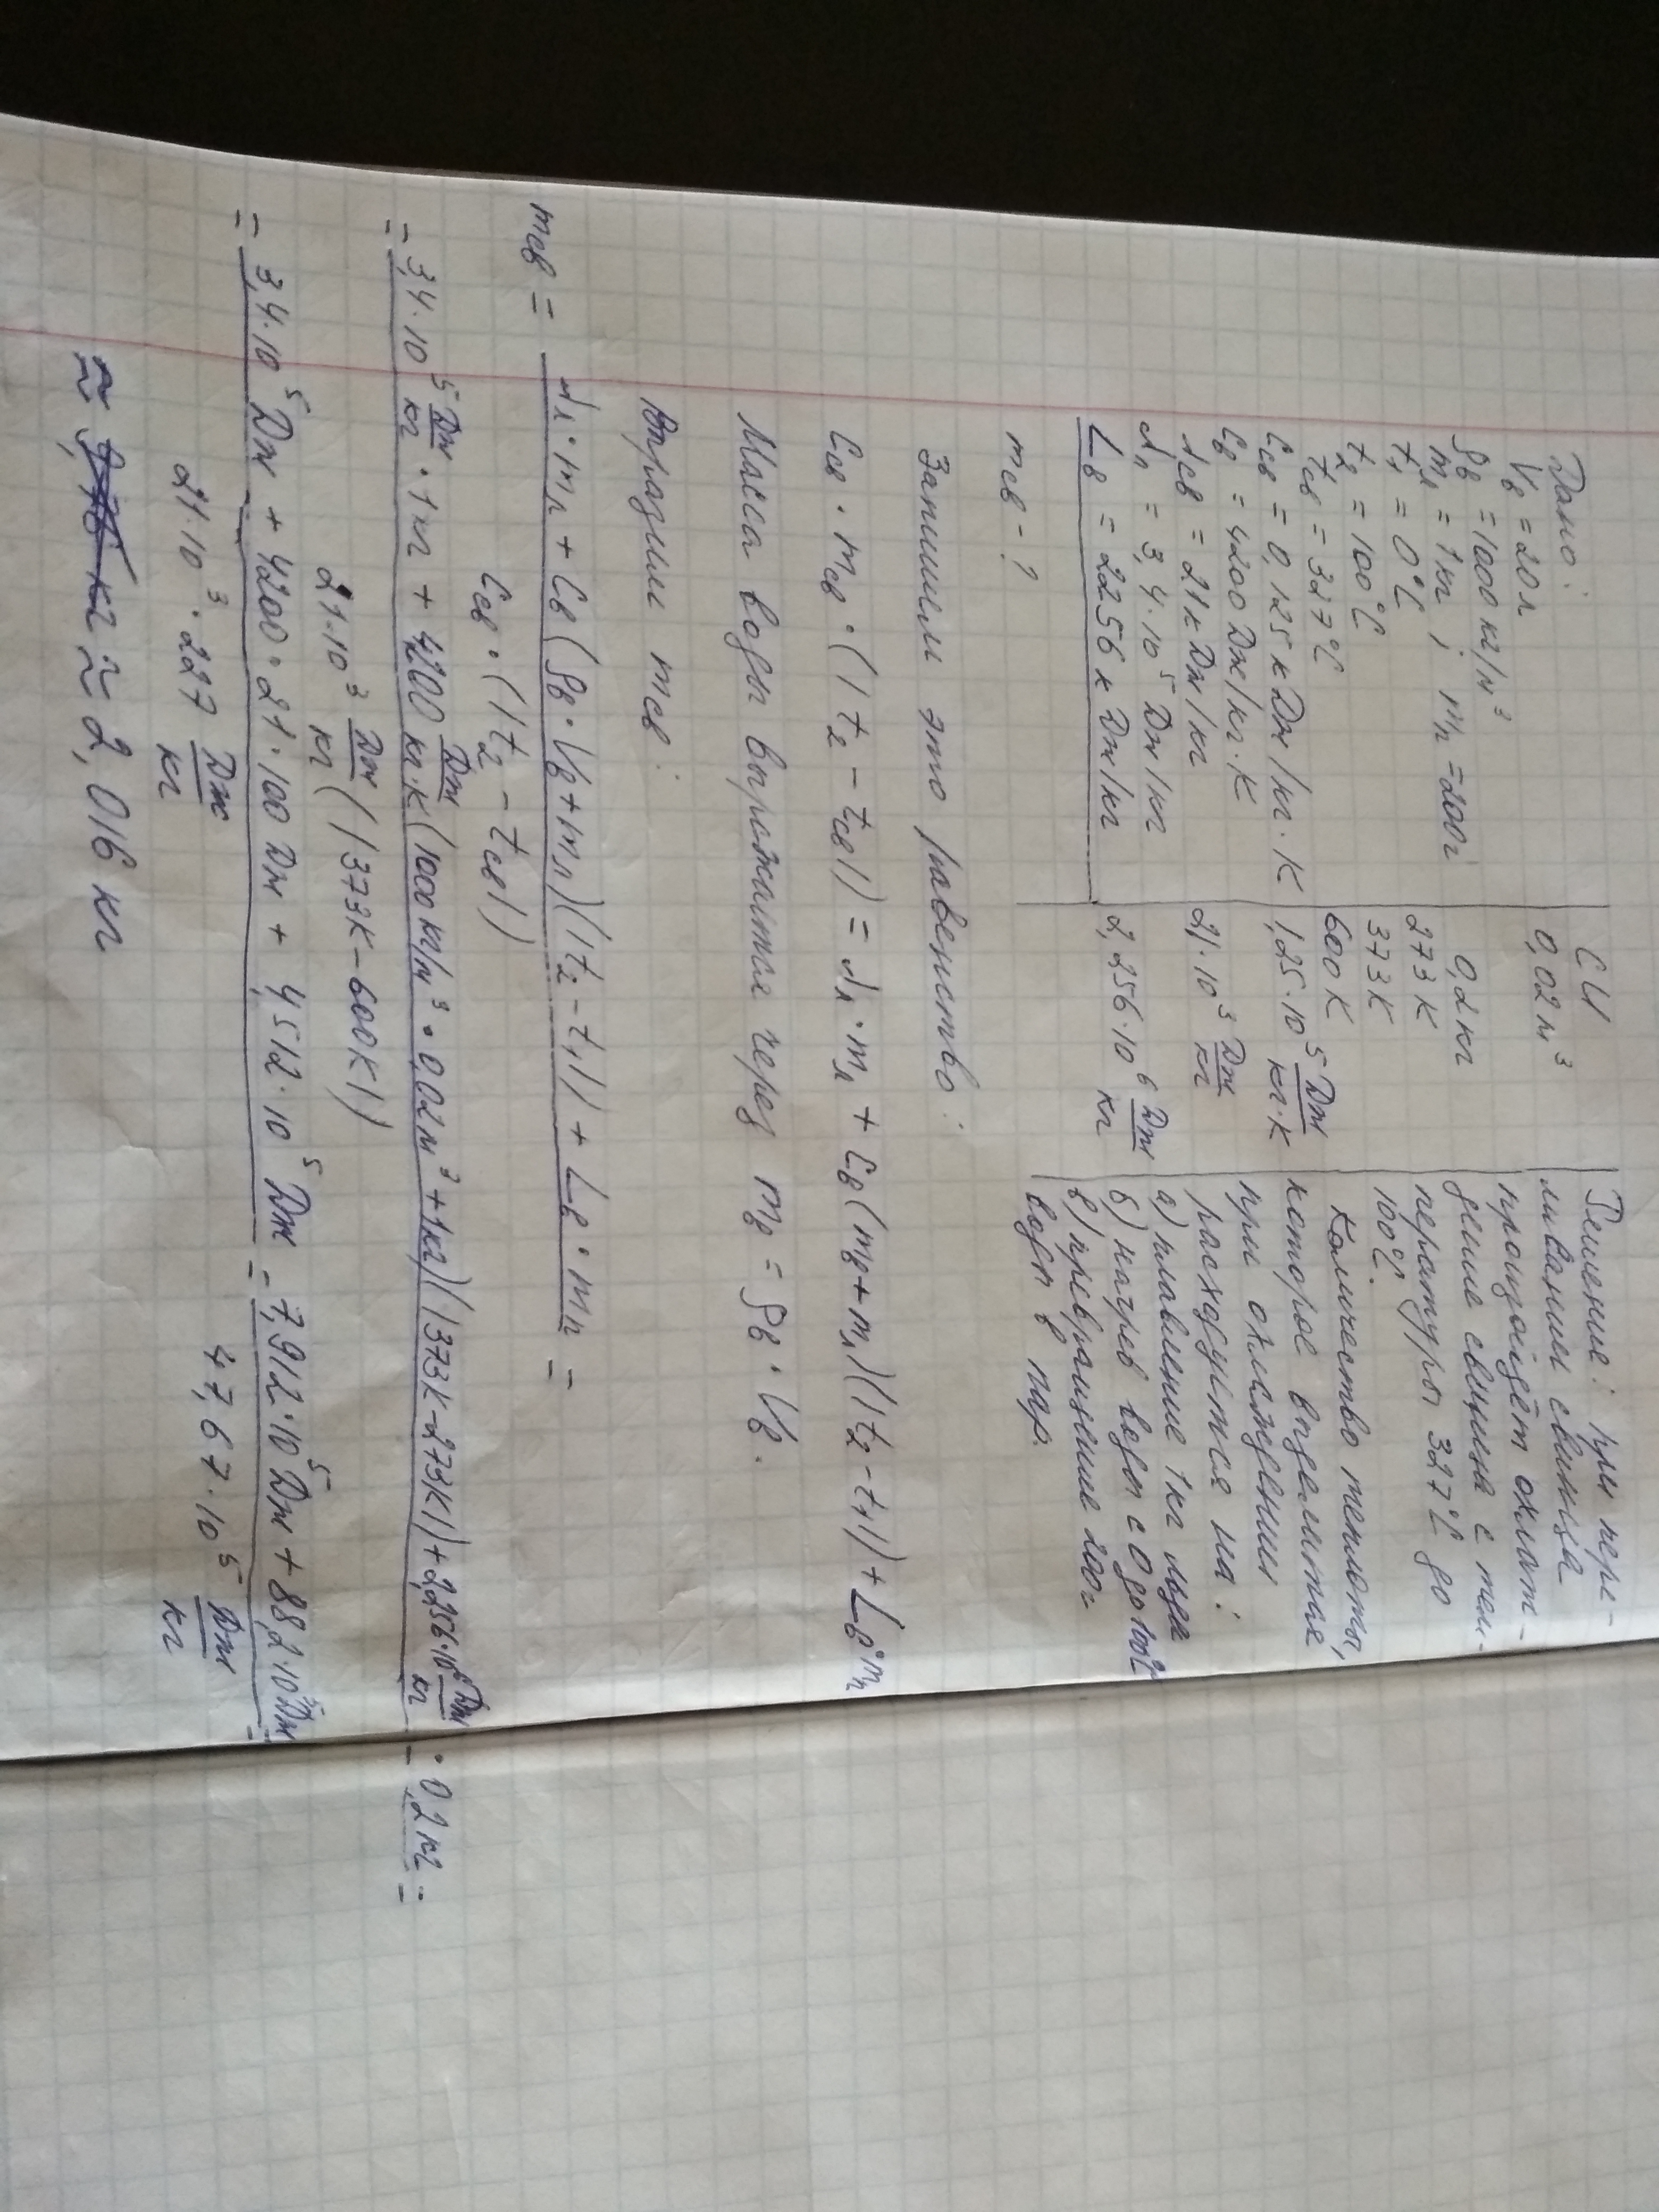 Дано:
Vв = 20 л
ρв = 1000 кг/м³
mл = 1 кг ; mп = 200г
t₁ = 0°C
t₂ = 100°C
tсв = 327°C
Cсв = 0,125 кДж/кг·К
Cв = 4200 Дж/кг·К
λсв = 21 кДж/кг
λл = 3,4·10⁵ Дж/кг
Lв = 2256 кДж/кг
mсв - ?
СИ
0,02 м³
0,2 кг
273 К
373 К
600 К
1,25·10⁵ Дж/кг·К
21·10³ Дж/кг
2,256·10⁶ Дж/кг
Решение: при пере-
ливании свинца
произойдёт охлаж-
дение свинца с тем-
пературы 327°C до
100°C.
Количество теплоты,
которое выделится
при охлаждении
расходуется на:
а) плавление 1кг льда
б) нагрев воды с 0 до 100°C
в) превращение 200г
воды в пар.
Запишем это равенство:
Cсв · mсв · (|t₂ - tсв|) = λл · mл + Cв(mв + mл)(|t₂ - t₁|) + Lв·mп
Масса воды выражается через mв = ρв · Vв.
Выразим mсв:
mсв = λл · mл + Cв(ρв · Vв + mл)(|t₂ - t₁|) + Lв · mп =
Cсв · (|t₂ - tсв|)
= 3,4·10⁵ Дж/кг · 1кг + 4200 Дж/кг·К (1000 кг/м³ · 0,02 м³ + 1кг)(|373К-273К|) + 2,256·10⁶ Дж/кг · 0,2 кг =
21·10³ Дж/кг (|373К-600К|)
= 3,4·10⁵ Дж + 4200·21·100 Дж + 4,512·10⁵ Дж = 7,912·10⁵ Дж + 88,2·10⁵ Дж =
21·10³ · 227 Дж/кг 47,67·10⁵ Дж/кг
≈ 2,016 кг